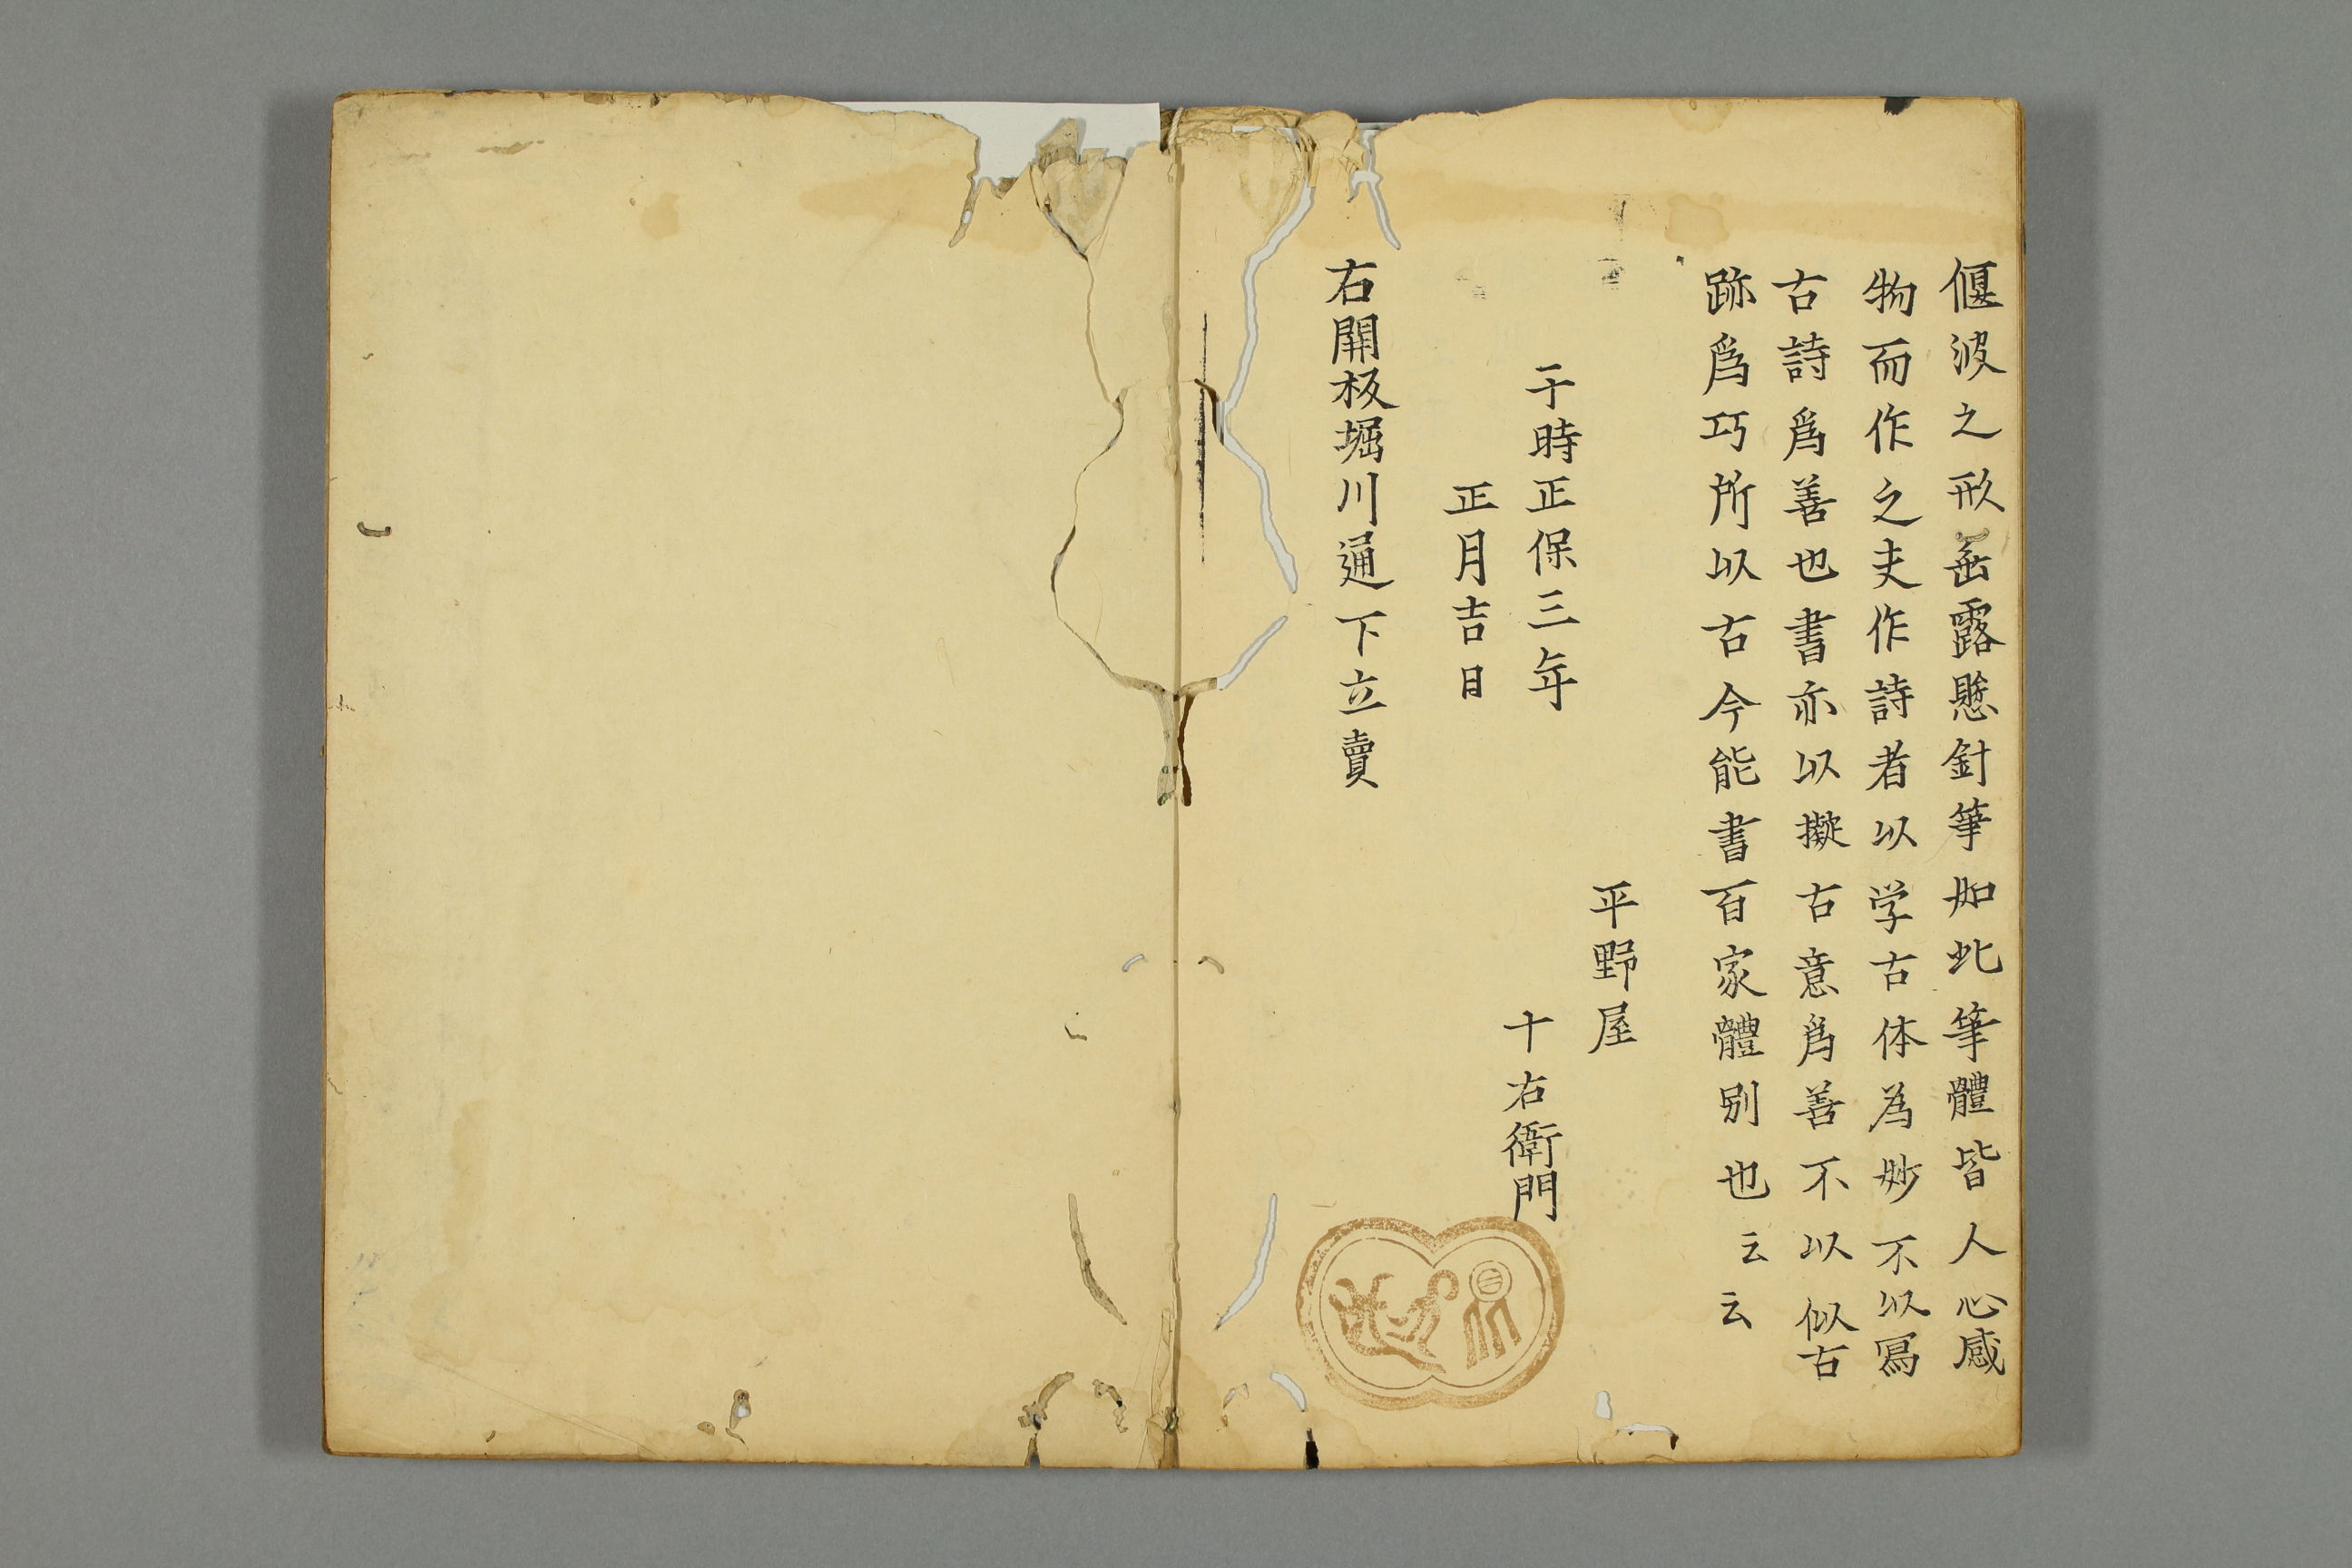 偃波之形垂露懸針筆如此筆體皆人心感
物而作之夫作詩者以学古体為妙不以寫
古詩爲善也書亦以擬古意爲善不以似古
跡爲巧所以古今能書百家體別也云云
平野屋
于時正保三年
十右衛門
正月吉日
右開板堀川通下立賣